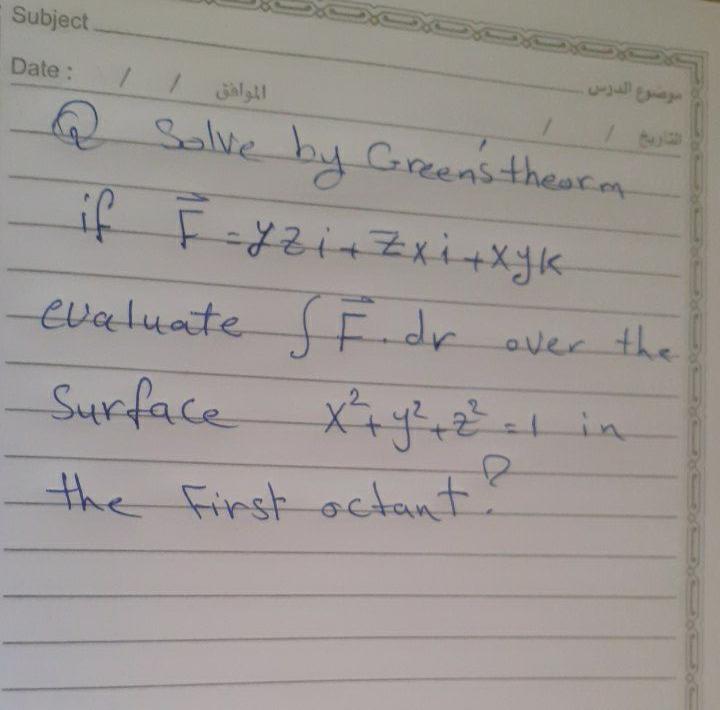 Subject
Date : / / الموافق
موضوع الدرس
/ / التاريخ
Q Solve by Green's theorm
if F = yzi + zxi + xyk
evaluate ∫ F . dr over the
Surface x² + y² + z² = 1 in
the First octant ?